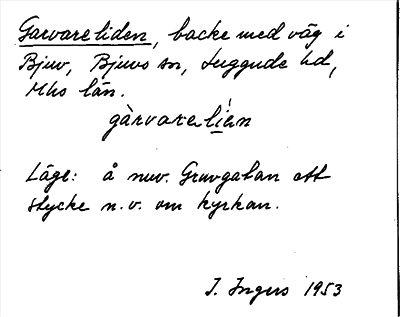 Garvareliden, backe med väg i
Bjuv, Bjuvs sn, Luggude hd,
Mhs län.
gàrvareli̱én
Läge: å nuv. Gruvgatan ett
stycke n.v. om kyrkan.
I. Ingers 1953